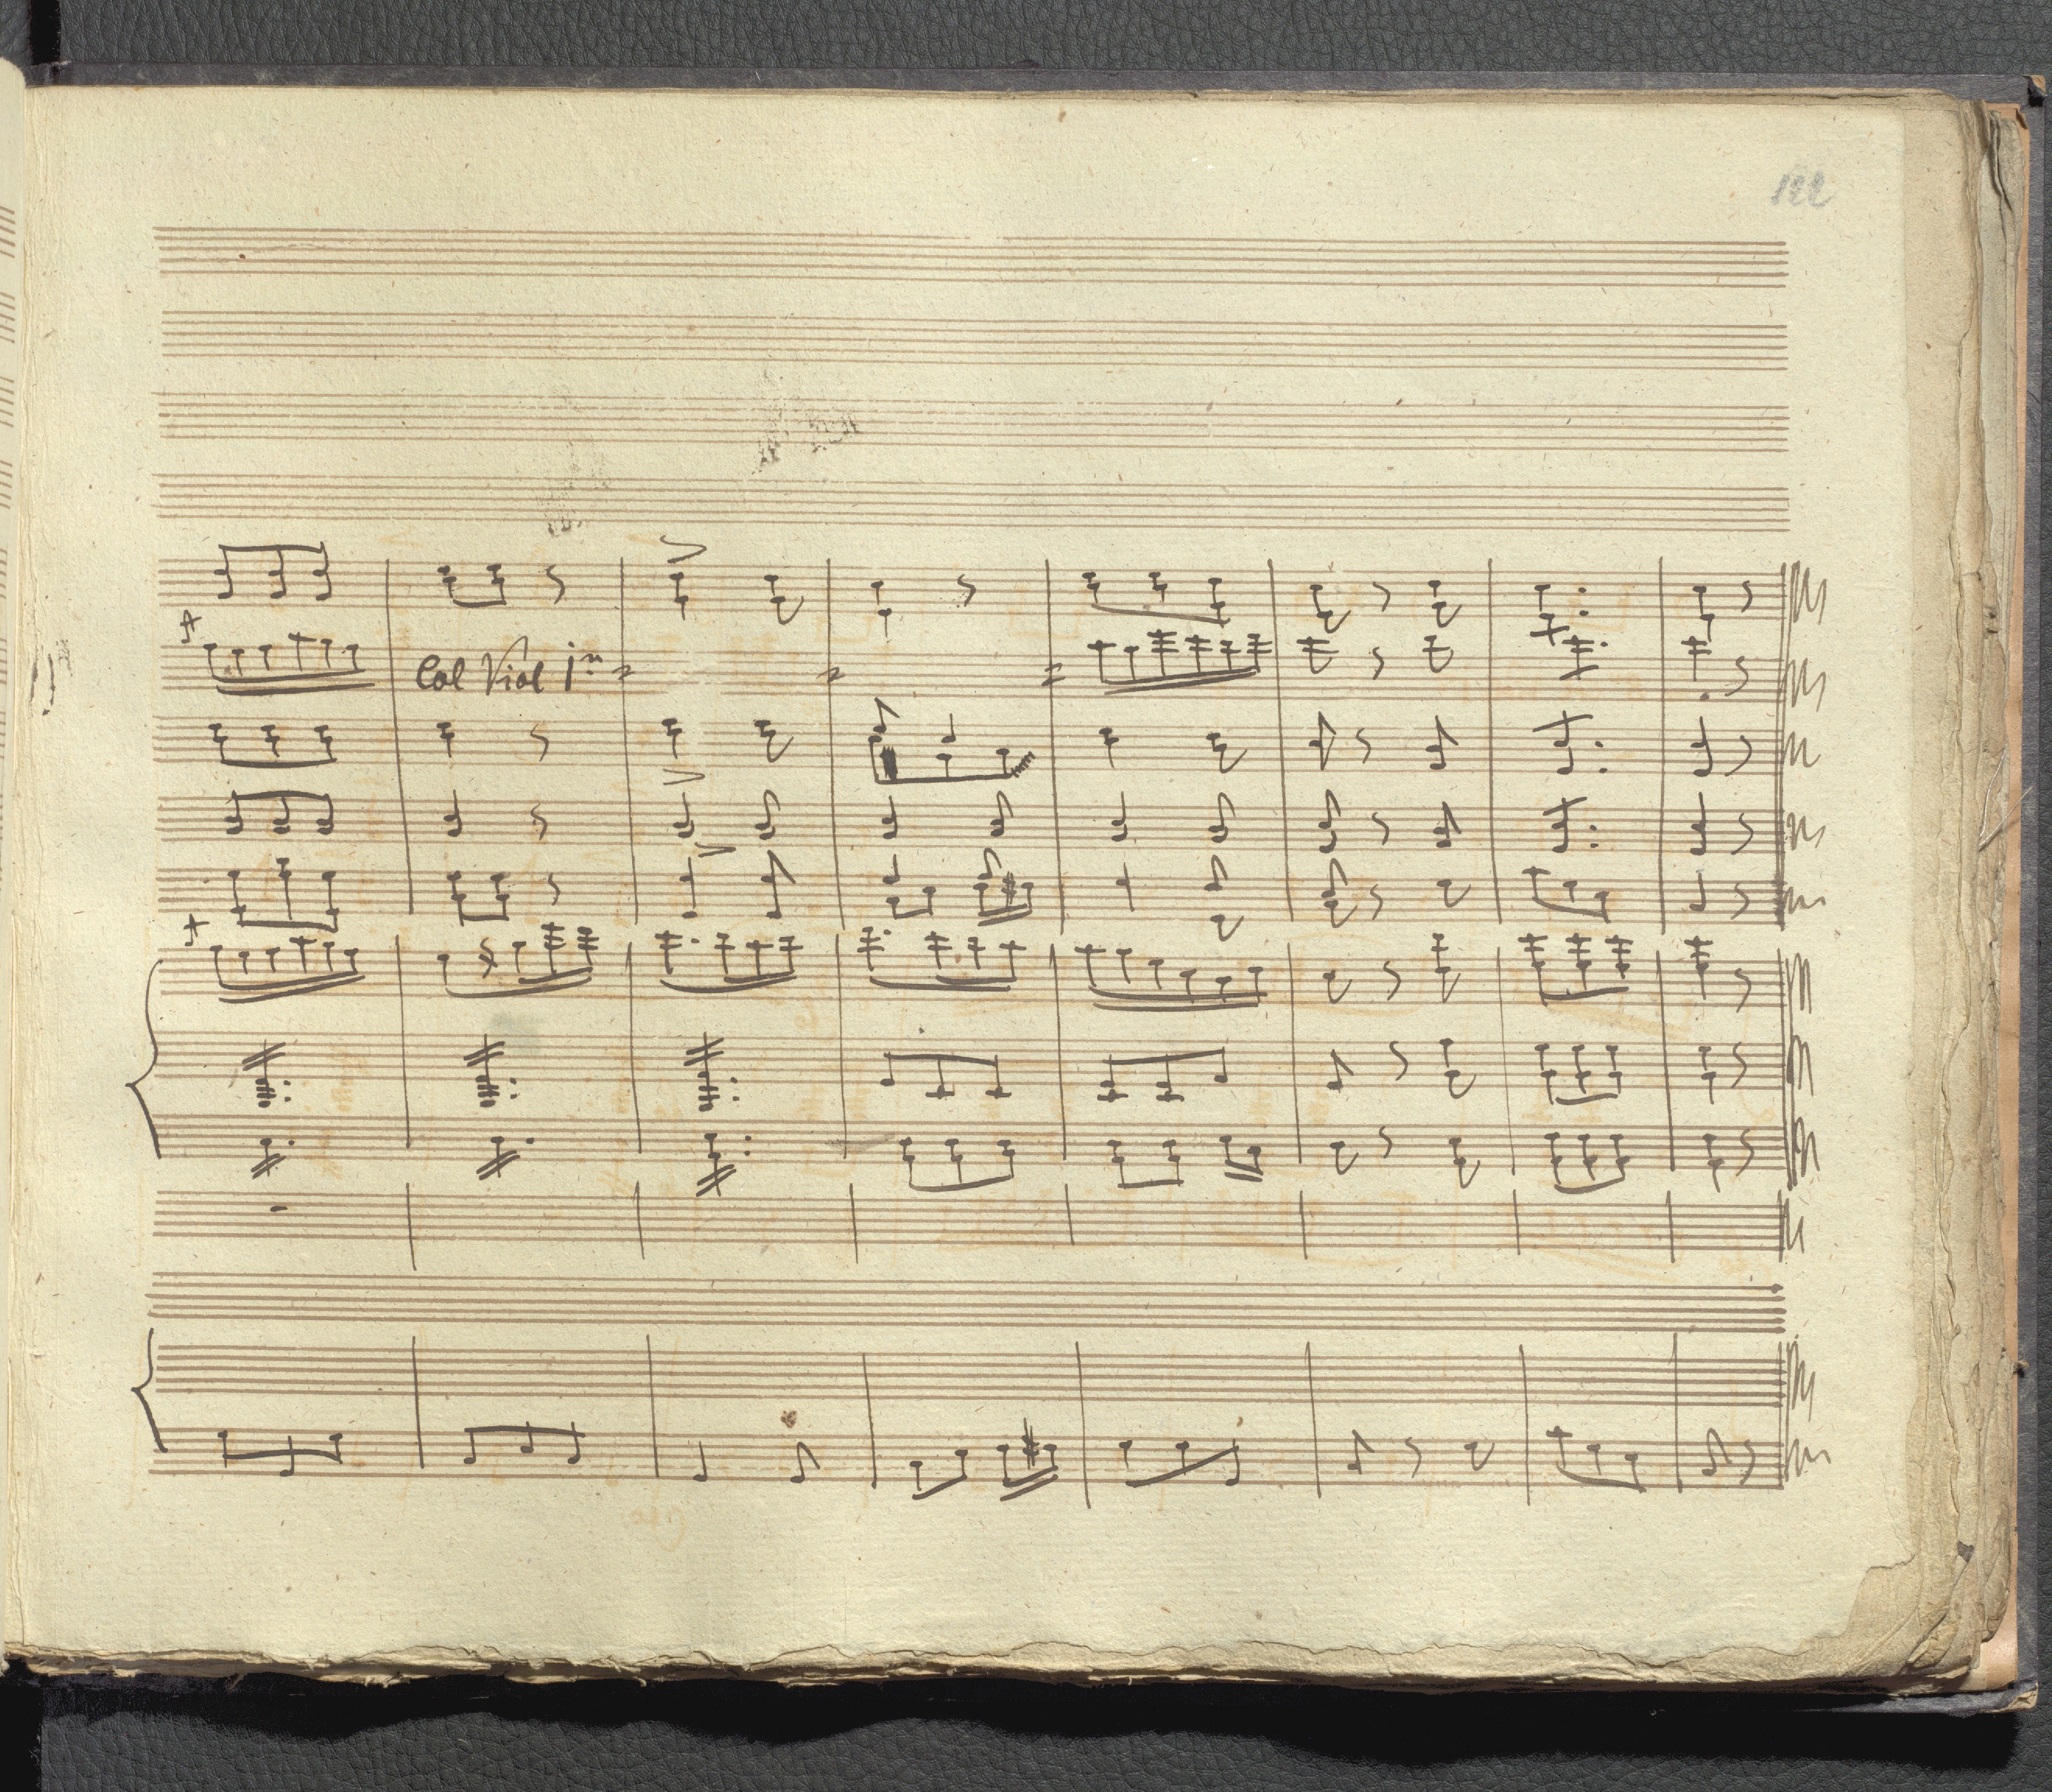 122
Col Viol 1º